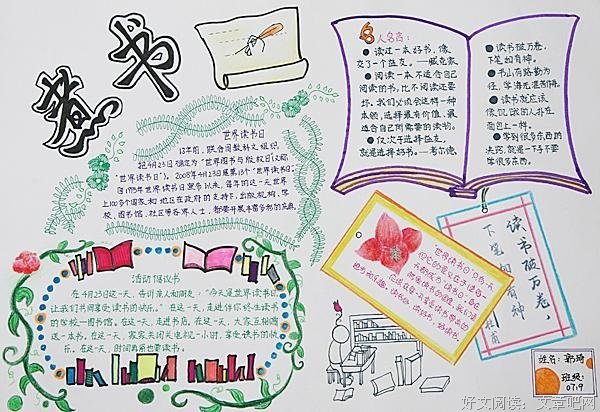 煮书
世界读书日
13年前,联合国教科文组织
把4月23日确定为“世界图书与版权日(又称
“世界读书日”)。2008年4月23日是第13个“世界读书日”。
自1995年世界读书日宣布以来,每年的这一天世界
上100多个国家和地区在政府的支持下,出版机构,学
校,图书馆,社区等各界人士,都要开展丰富多彩的庆典
活动倡议书
在4月23日这一天,告诉亲人和朋友:“今天是世界读书日,
让我们共同享受读书的快乐。”在这一天,走进伴你终生读书
的学校—图书馆。在这一天,走进书店。在这一天,大家互相赠
送一本书。在这一天,家家关闭电视机一小时,享受读书的快
乐。在这一天,时间再紧也要读书。
名人名言:
●读过一本好书,像
交了一个益友。——臧克家
●阅读一本不适合自己
阅读的书,比不阅读还要
坏。我们必须会这样一种
本领,选择最有价值,最
适合自己所需要的读物。
●仅次于选择益友,
就是选择好书。——考尔德
●读书破万卷,
下笔如有神。
●书山有路勤为
径,学海无涯苦作舟
●读书就应该
像饥饿的人扑在
面包上一样。
●学到很多东西的
诀窍,就是一下子不要
学很多东西。
读书破万卷,
下笔如有神
姓名:郭琦
班级:
07.9
好文阅读:文章吧网